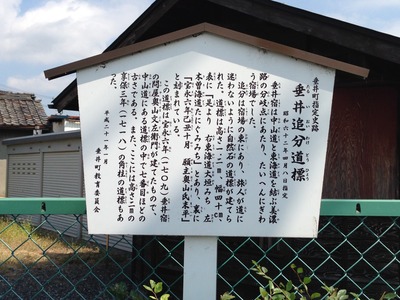 垂井町指定史跡
垂井追分道標
昭和六十二年四月八日指定
垂井宿は中山道と東海道を結ぶ美濃
路の分岐点にあたり、たいへんにぎわ
う宿場でした。
追分は宿場の東にあり、旅人が道に
迷わないように自然石の道標が建てら
れた。道標は高さ一・二m、幅四十㎝、
表に「是より 右東海道大垣みち 左
木曽海道たにぐみみち」とあり、裏に
「宝永六年己丑十月 願主奥山氏末平」
と刻まれている。
この道標は宝永六年（一七〇九）垂井宿
の問屋奥山文左衛門が建てたもので、
中山道にある道標の中で七番目ほどの
古さである。また、ここには高さ二mの
享保三年（一七一八）の角柱の道標もあ
った。
平成二十二年一月
垂井町教育委員会